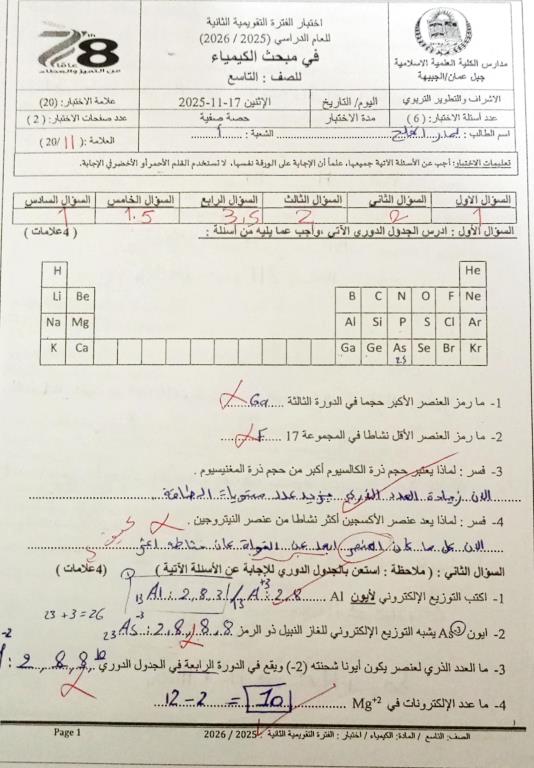 اختبار الفترة التقويمية الثانية
للعام الدراسي (2025 / 2026)
في مبحث الكيمياء
للصف : التاسع
78
عامًا
من التميز والعطاء
مدارس الكلية العلمية الاسلامية
جبل عمان/الجبيهة
الاشراف والتطوير التربوي
اليوم/ التاريخ
الإثنين 17-11-2025
علامة الاختبار: (20)
عدد أسئلة الاختبار: (6)
مدة الاختبار
حصة صفية
عدد صفحات الاختبار: (2)
اسم الطالب:
الشعبة: أ
العلامة: ( 11 /20)
تعليمات الاختبار: أجب عن الاسئلة الآتية جميعها، علماً أن الإجابة على الورقة نفسها، لا تستخدم القلم الأحمر أو الأخضر في الإجابة.
السؤال الاول السؤال الثاني السؤال الثالث السؤال الرابع السؤال الخامس السؤال السادس
1 2 2 3,5 1.5 1
السؤال الأول : ادرس الجدول الدوري الآتي ،وأجب عما يليه من أسئلة : ( 4علامات )
H He
Li Be B C N O F Ne
Na Mg Al Si P S Cl Ar
K Ca Ga Ge As Se Br Kr
1- ما رمز العنصر الأكبر حجما في الدورة الثالثة Ga
2- ما رمز العنصر الأقل نشاطا في المجموعة 17 F
3- فسر : لماذا يعتبر حجم ذرة الكالسيوم أكبر من حجم ذرة المغنيسيوم .
الان زيادة العدد الذري يزيد عدد مستويات الطاقة
4- فسر : لماذا يعد عنصر الأكسجين أكثر نشاطا من عنصر النيتروجين .
الان كل ما كان العنصر ابعد عن النواة كان نشاطه اعلى
السؤال الثاني : ( ملاحظة : استعن بالجدول الدوري للإجابة عن الأسئلة الآتية ) (4علامات )
1- اكتب التوزيع الإلكتروني لأيون Al 13Al : 2,8,3 / 13Al+3 : 2,8
23 +3 =26
2- ايون As3- يشبه التوزيع الإلكتروني للغاز النبيل ذو الرمز 23As-3 : 2,8,8,8
3- ما العدد الذري لعنصر يكون أيونا شحنته (2-) ويقع في الدورة الرابعة في الجدول الدوري
4- ما عدد الإلكترونات في Mg+2 12-2 = 10
الصف: التاسع / المادة: الكيمياء / اختبار : الفترة التقويمية الثانية : 2025 / 2026 Page 1